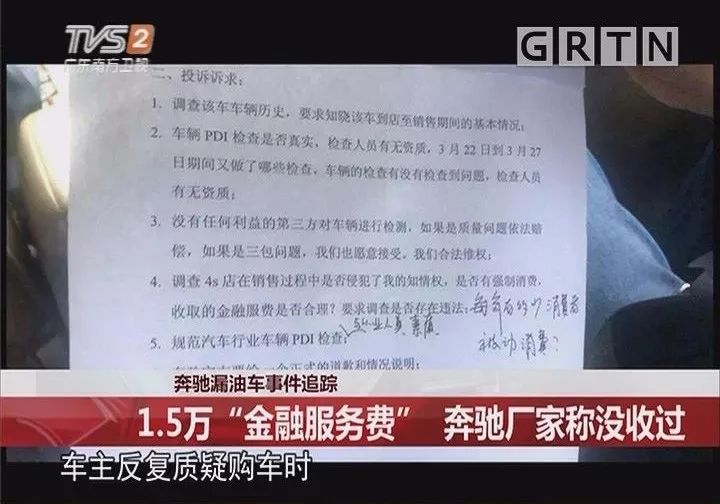 TVS2
广东南方卫视
GRTN
二、投诉诉求：
1. 调查该车车辆历史，要求知晓该车到店至销售期间的基本情况；
2. 车辆 PDI 检查是否真实，检查人员有无资质，3 月 22 日到 3 月 27
日期间又做了哪些检查，车辆的检查有没有检查到问题，检查人员
有无资质；
3. 没有任何利益的第三方对车辆进行检测，如果是质量问题依法赔
偿，如果是三包问题，我们也愿意接受。我们合法维权；
4. 调查 4s 店在销售过程中是否侵犯了我的知情权，是否有强制消费，
收取的金融服费是否合理？要求调查是否存在违法；
消费者
5. 规范汽车行业车辆 PDI 检查；
业人员 素质
被动消费？
一个正式的道歉和情况说明；
奔驰漏油车事件追踪
1.5万“金融服务费” 奔驰厂家称没收过
车主反复质疑购车时